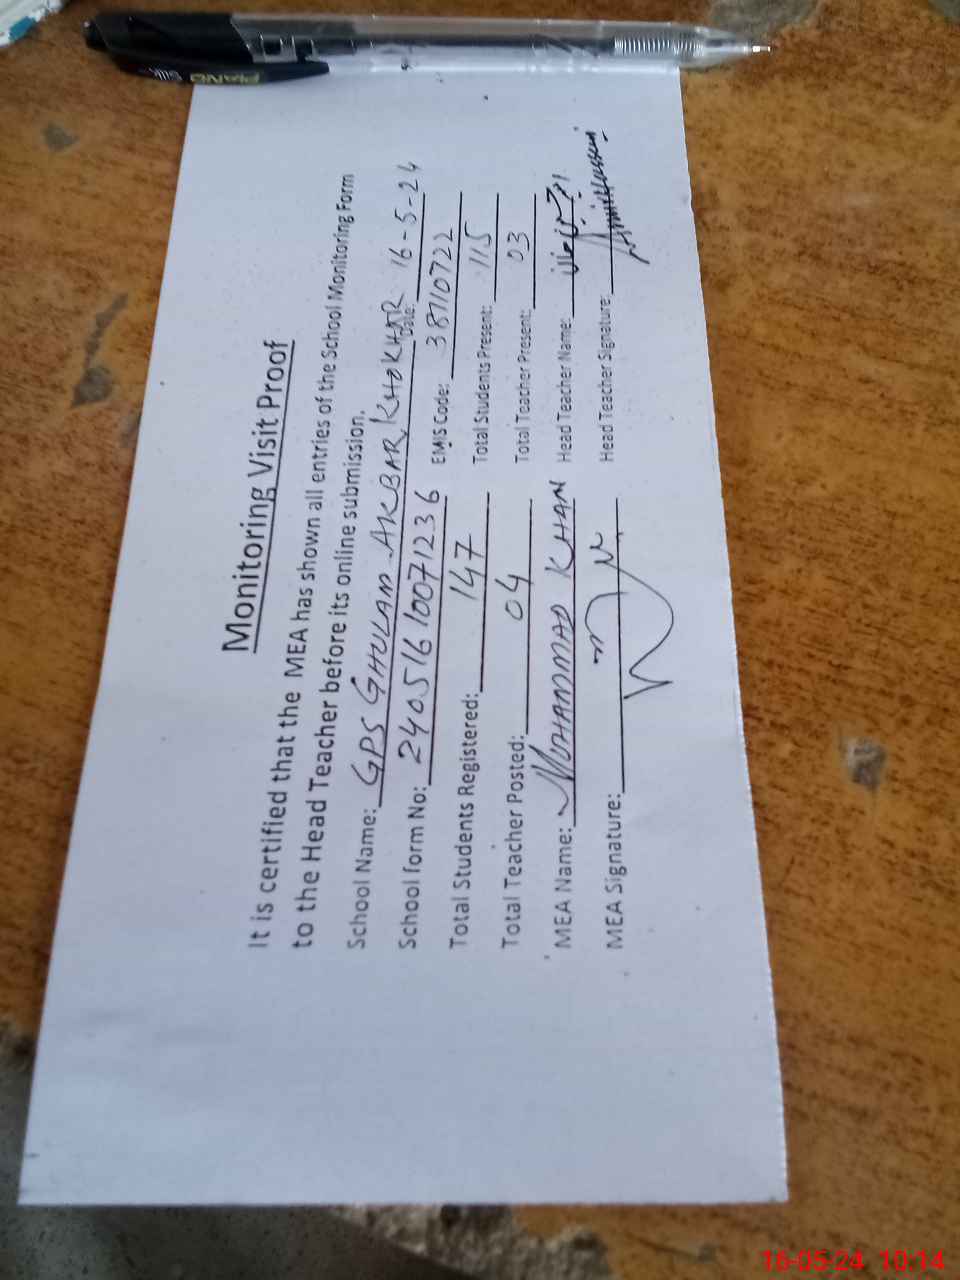 Monitoring Visit Proof
It is certified that the MEA has shown all entries of the School Monitoring Form
to the Head Teacher before its online submission.
School Name: GPS GHULAM AKBAR KHOKHAR Date: 16-5-24
School form No: 24051610071236 EMIS Code: 38710722
Total Students Registered: 147 Total Students Present: 115
Total Teacher Posted: 04 Total Teacher Present: 03
MEA Name: MUHAMMAD KHAN Head Teacher Name:
MEA Signature: Head Teacher Signature:
PIANO
16-05-24 10:14